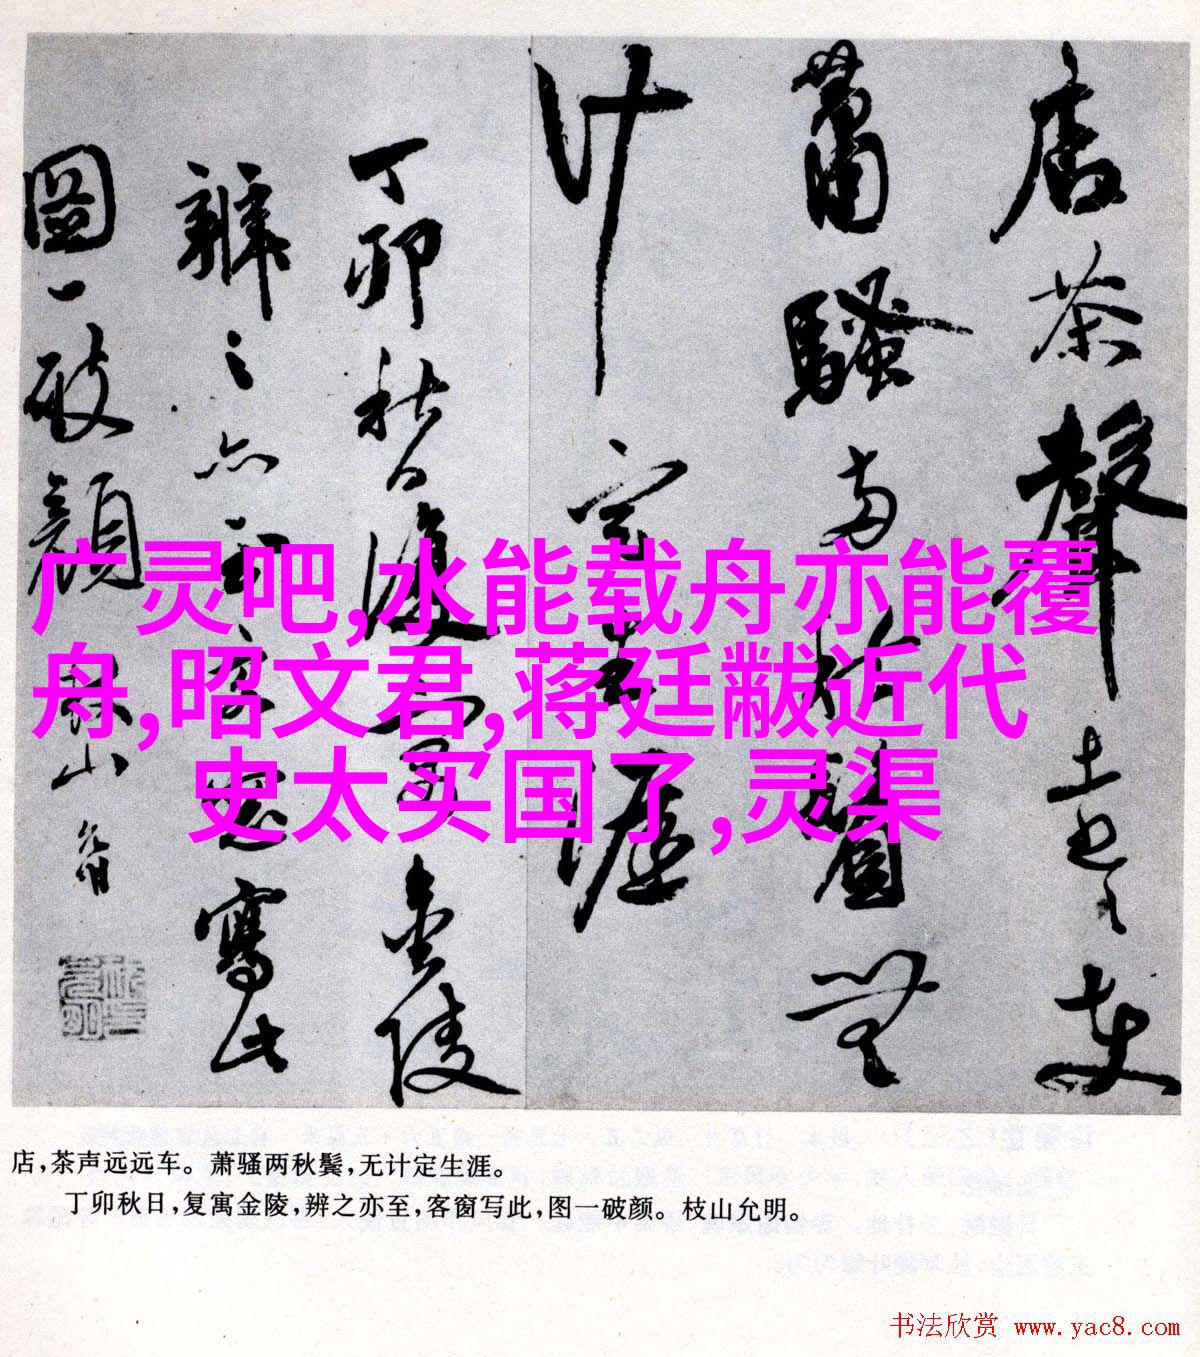 店茶聲遠遠車
蕭騷兩秋鬢無
计定生涯
丁卯秋日復寓金陵
辨之亦至客窗寫此
圖一破顏枝山允明
广灵吧,水能载舟亦能覆
舟,昭文君,蒋廷黻近代
史太买国了,灵渠
店,茶声远远车。萧骚两秋鬓,无计定生涯。
丁卯秋日,复寓金陵,辨之亦至,客窗写此,图一破颜。枝山允明。
书法欣赏 www.yac8.com